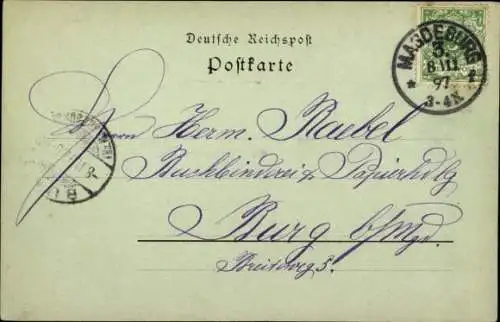 Deutsche Reichspost
Postkarte
MAGDEBURG
3.
8 III
97
3-4N.
Herrn Herm. Raebel
Buchbinderei & Papierhdlg
Burg b/Mgd.
Breiteweg 5.